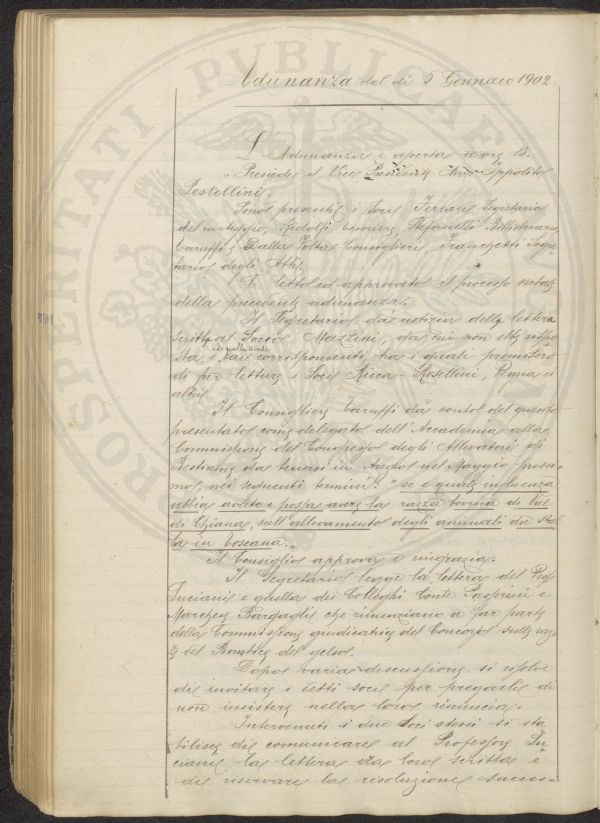 Adunanza del dì 5 Gennaio 1902
L'Adunanza è aperta a ore 13.
Presiede il Vice Presidente Ippolito
Pestellini.
Sono presenti i Soci Segretario
del carteggio, Ridolfi Stefanelli Bibliotecario
Caruffi, Dalla Volta Consiglieri, Franchetti Segre-
tario degli Atti.
È letto ed approvato il processo verbale
della precedente adunanza.
Il Segretario dà notizia della lettera
scritta al Socio Mazzini, da cui non ebbe rispo
sta, e corrispondenti, tra i quali promisero
di far lettura i Soci Ricca-Rosellini, ed
altri.
Il Consigliere Caruffi dà conto del quesito
presentato come delegato dell'Accademia alla
Commissione del Congresso degli Allevatori di
Bestiame da tenersi in nel Maggio prossi-
mo, nei seguenti termini: "se e quale influenza
abbia avuto e possa avere la razza bovina di Val
di Chiana, sull'allevamento degli animali da stal
la in Toscana."
Il Consiglio approva e ringrazia.
Il Segretario legge la lettera del Prof.
Luciani e quella dei Colleghi Conte Gasperini e
Marchese Bargagli che rinunziano a far parte
della Commissione giudicatrice del Concorso sulle raz
ze del Bombice del gelso.
Dopo varia discussione si risolve
di invitare i detti soci per pregarli di
non insistere nella loro rinuncia.
Intervenuti i due Soci stessi si sta
bilisce di comunicare al Professore Lu-
ciani la lettera da loro scritta e
di riservare la risoluzione succes-
PROSPERITATI PVBLICAE